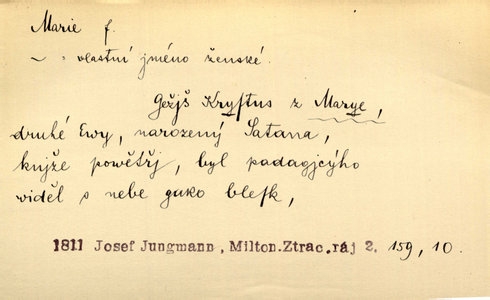 Marie f.
~ = vlastní jméno ženské.
Gežjš Kryſtus z Marye,
druhé Ewy, narozený Satana,
knjže powětřj, byl padagjcýho
widěl s nebe gako bleſk,
1811 Josef Jungmann, Milton.Ztrac.ráj 2. 159, 10.